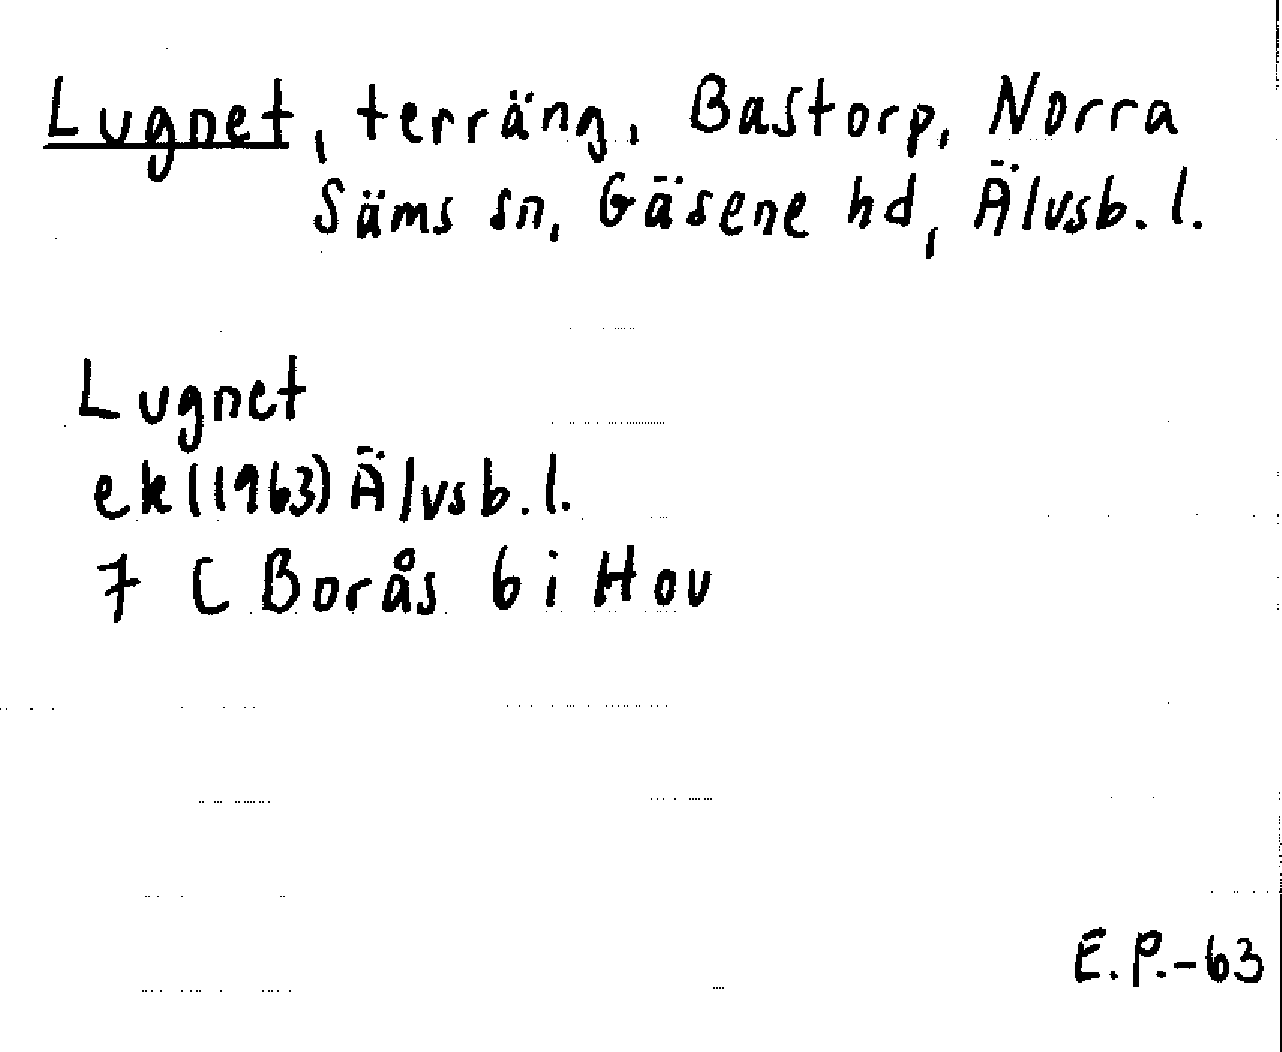 Lugnet, terräng, Bastorp, Norra
Säms sn, Gäsene hd, Älvsb. l.
Lugnet
ek (1963) Älvsb. l.
7 C Borås 6 i Hov
E.P.-63